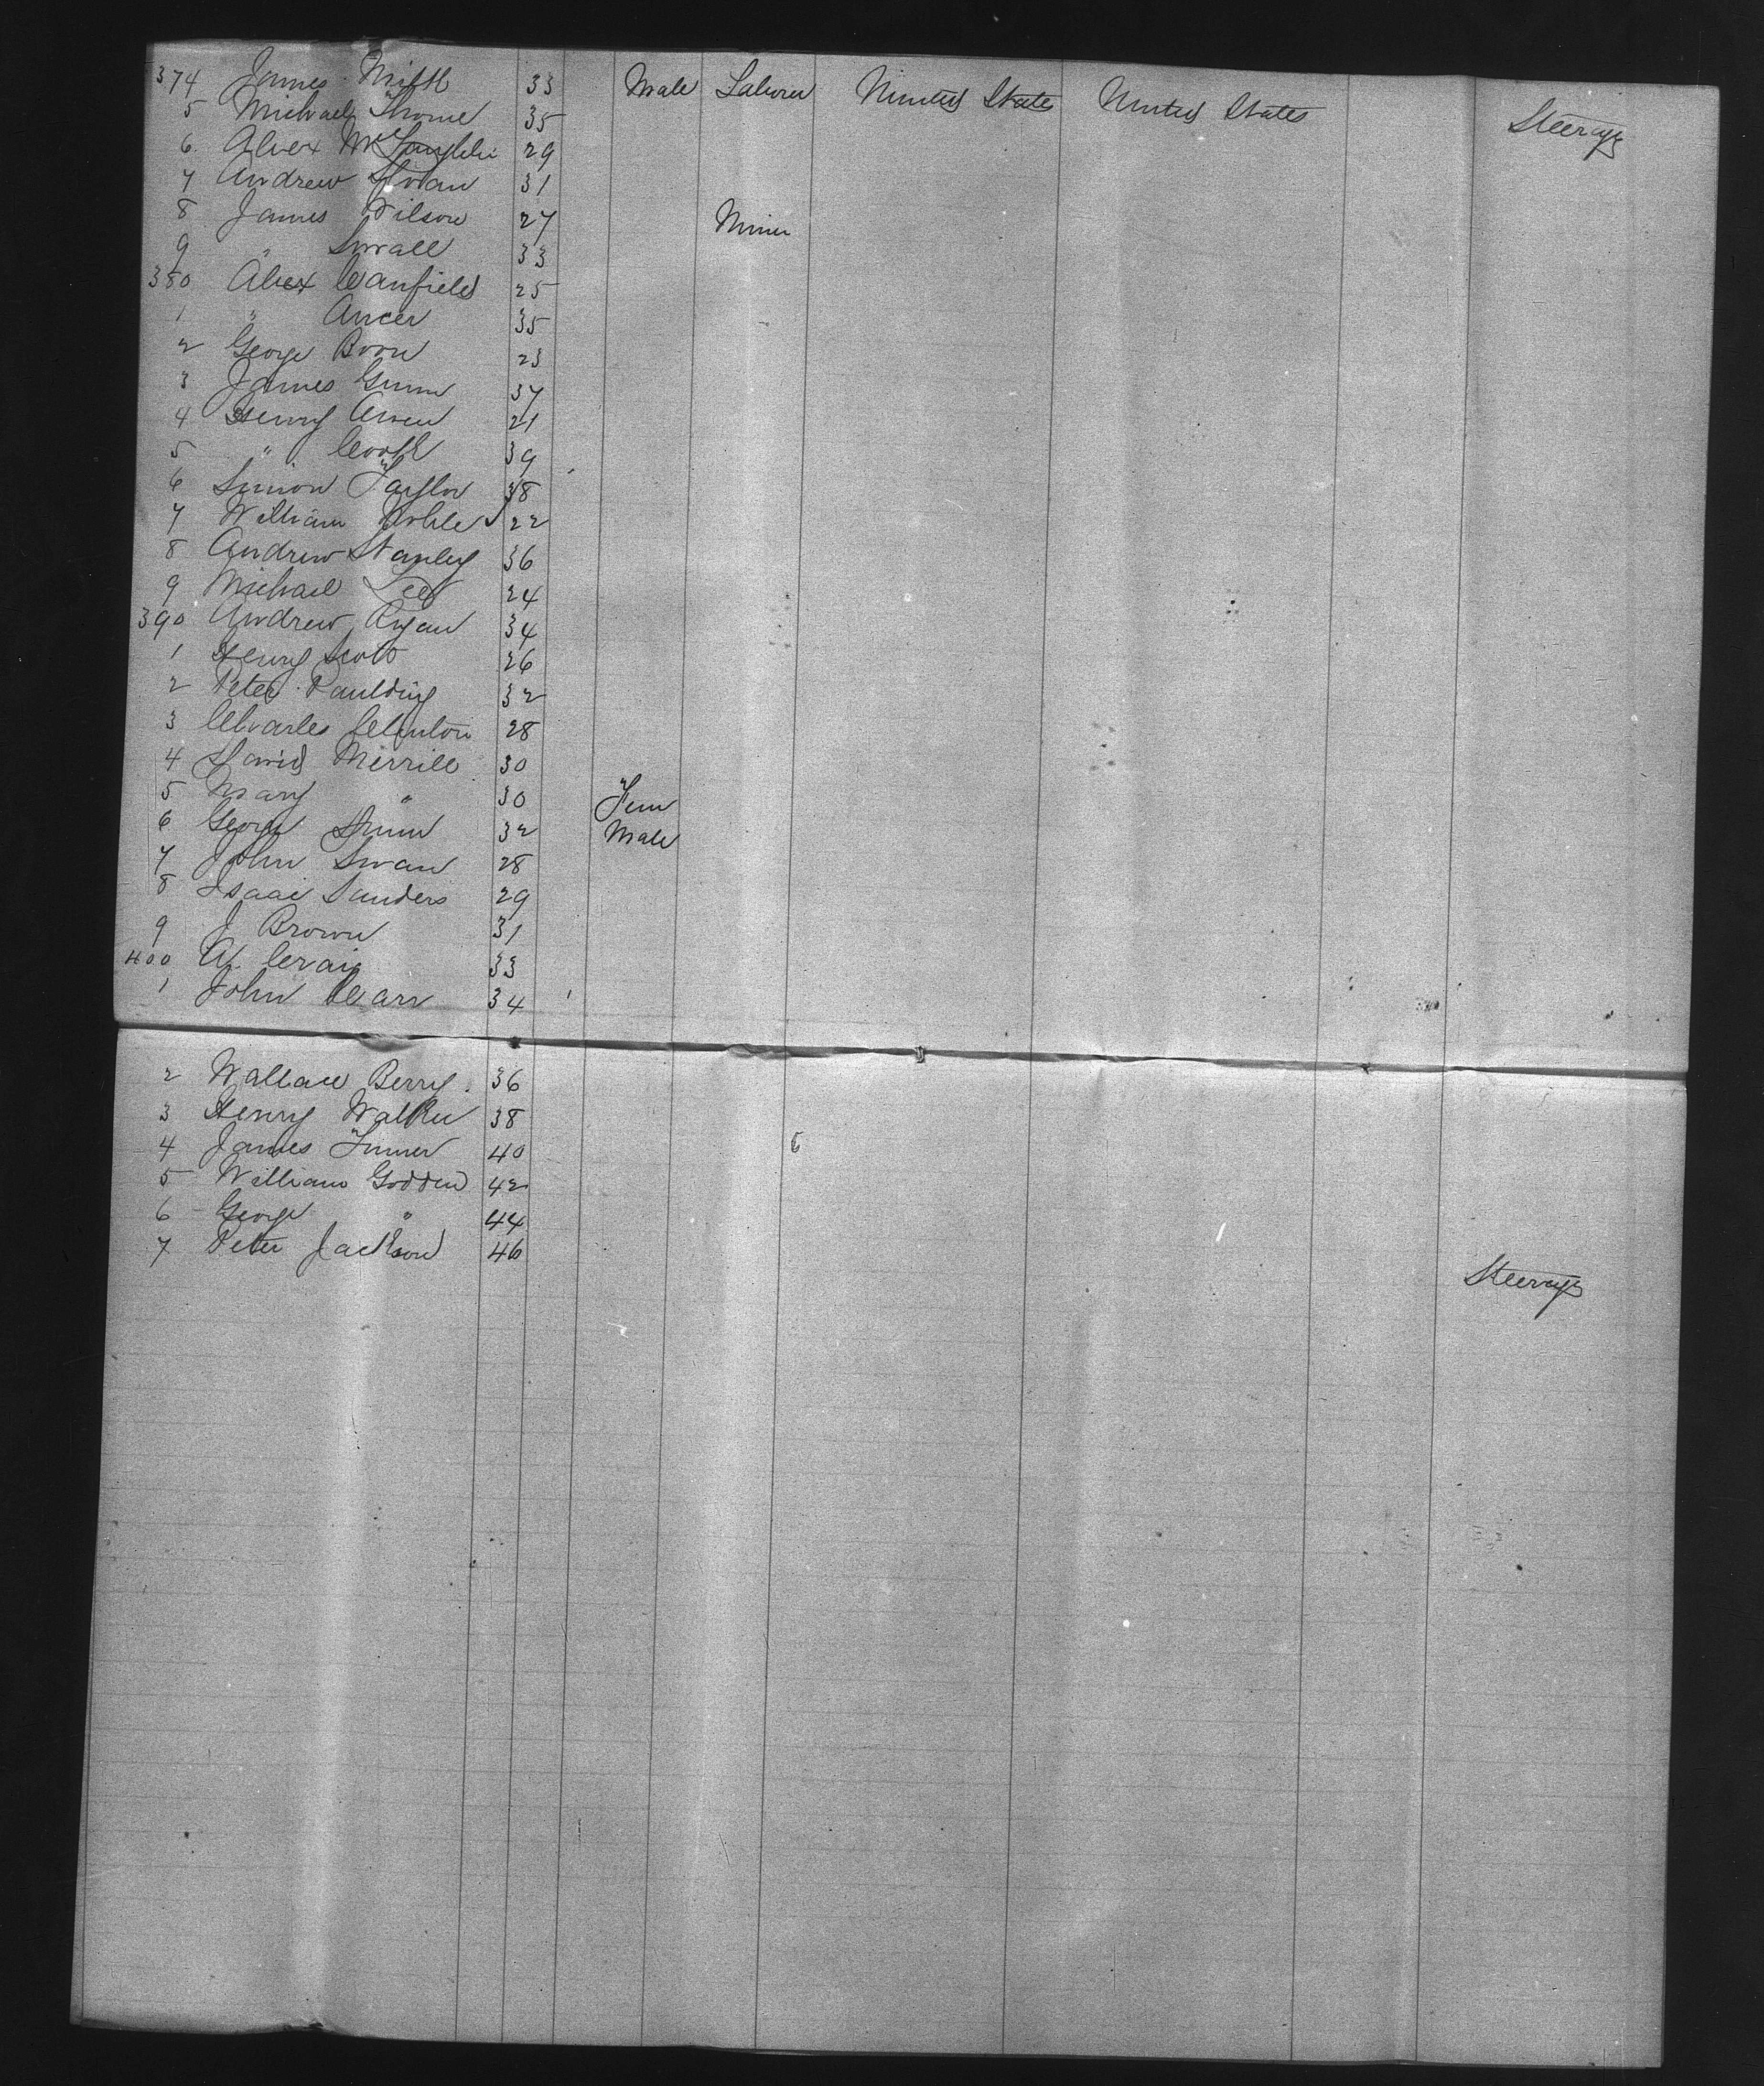 374 James Smith 33 Male Laborer United States United States Steerage
5 Michael Thorne 35
6 Alex McLaughlin 29
7 Andrew Sloan 31
8 James Wilson 27 Miner
9 " Small 33
380 Alex Canfield 25
1 " Ancer 35
2 George Boon 23
3 James Gunn 37
4 Henry Owen 21
5 " Cook 39
6 Simon Taylor 38
7 William Noble 22
8 Andrew Stanley 36
9 Michael Lee 24
390 Andrew Ryan 34
1 Henry Scott 26
2 Peter Paulding 32
3 Charles Clinton 28
4 David Merrill 30
5 Mary " 30 Fem
6 George 32 Male
7 John Swan 28
8 Isaac Sanders 29
9 J Brown 31
400 A. Craig 33
1 John Carr 34
2 Wallace Berry 36
3 Henry Walker 38
4 James Turner 40
5 William Godden 42
6 George " 44
7 Peter Jackson 46
Steerage